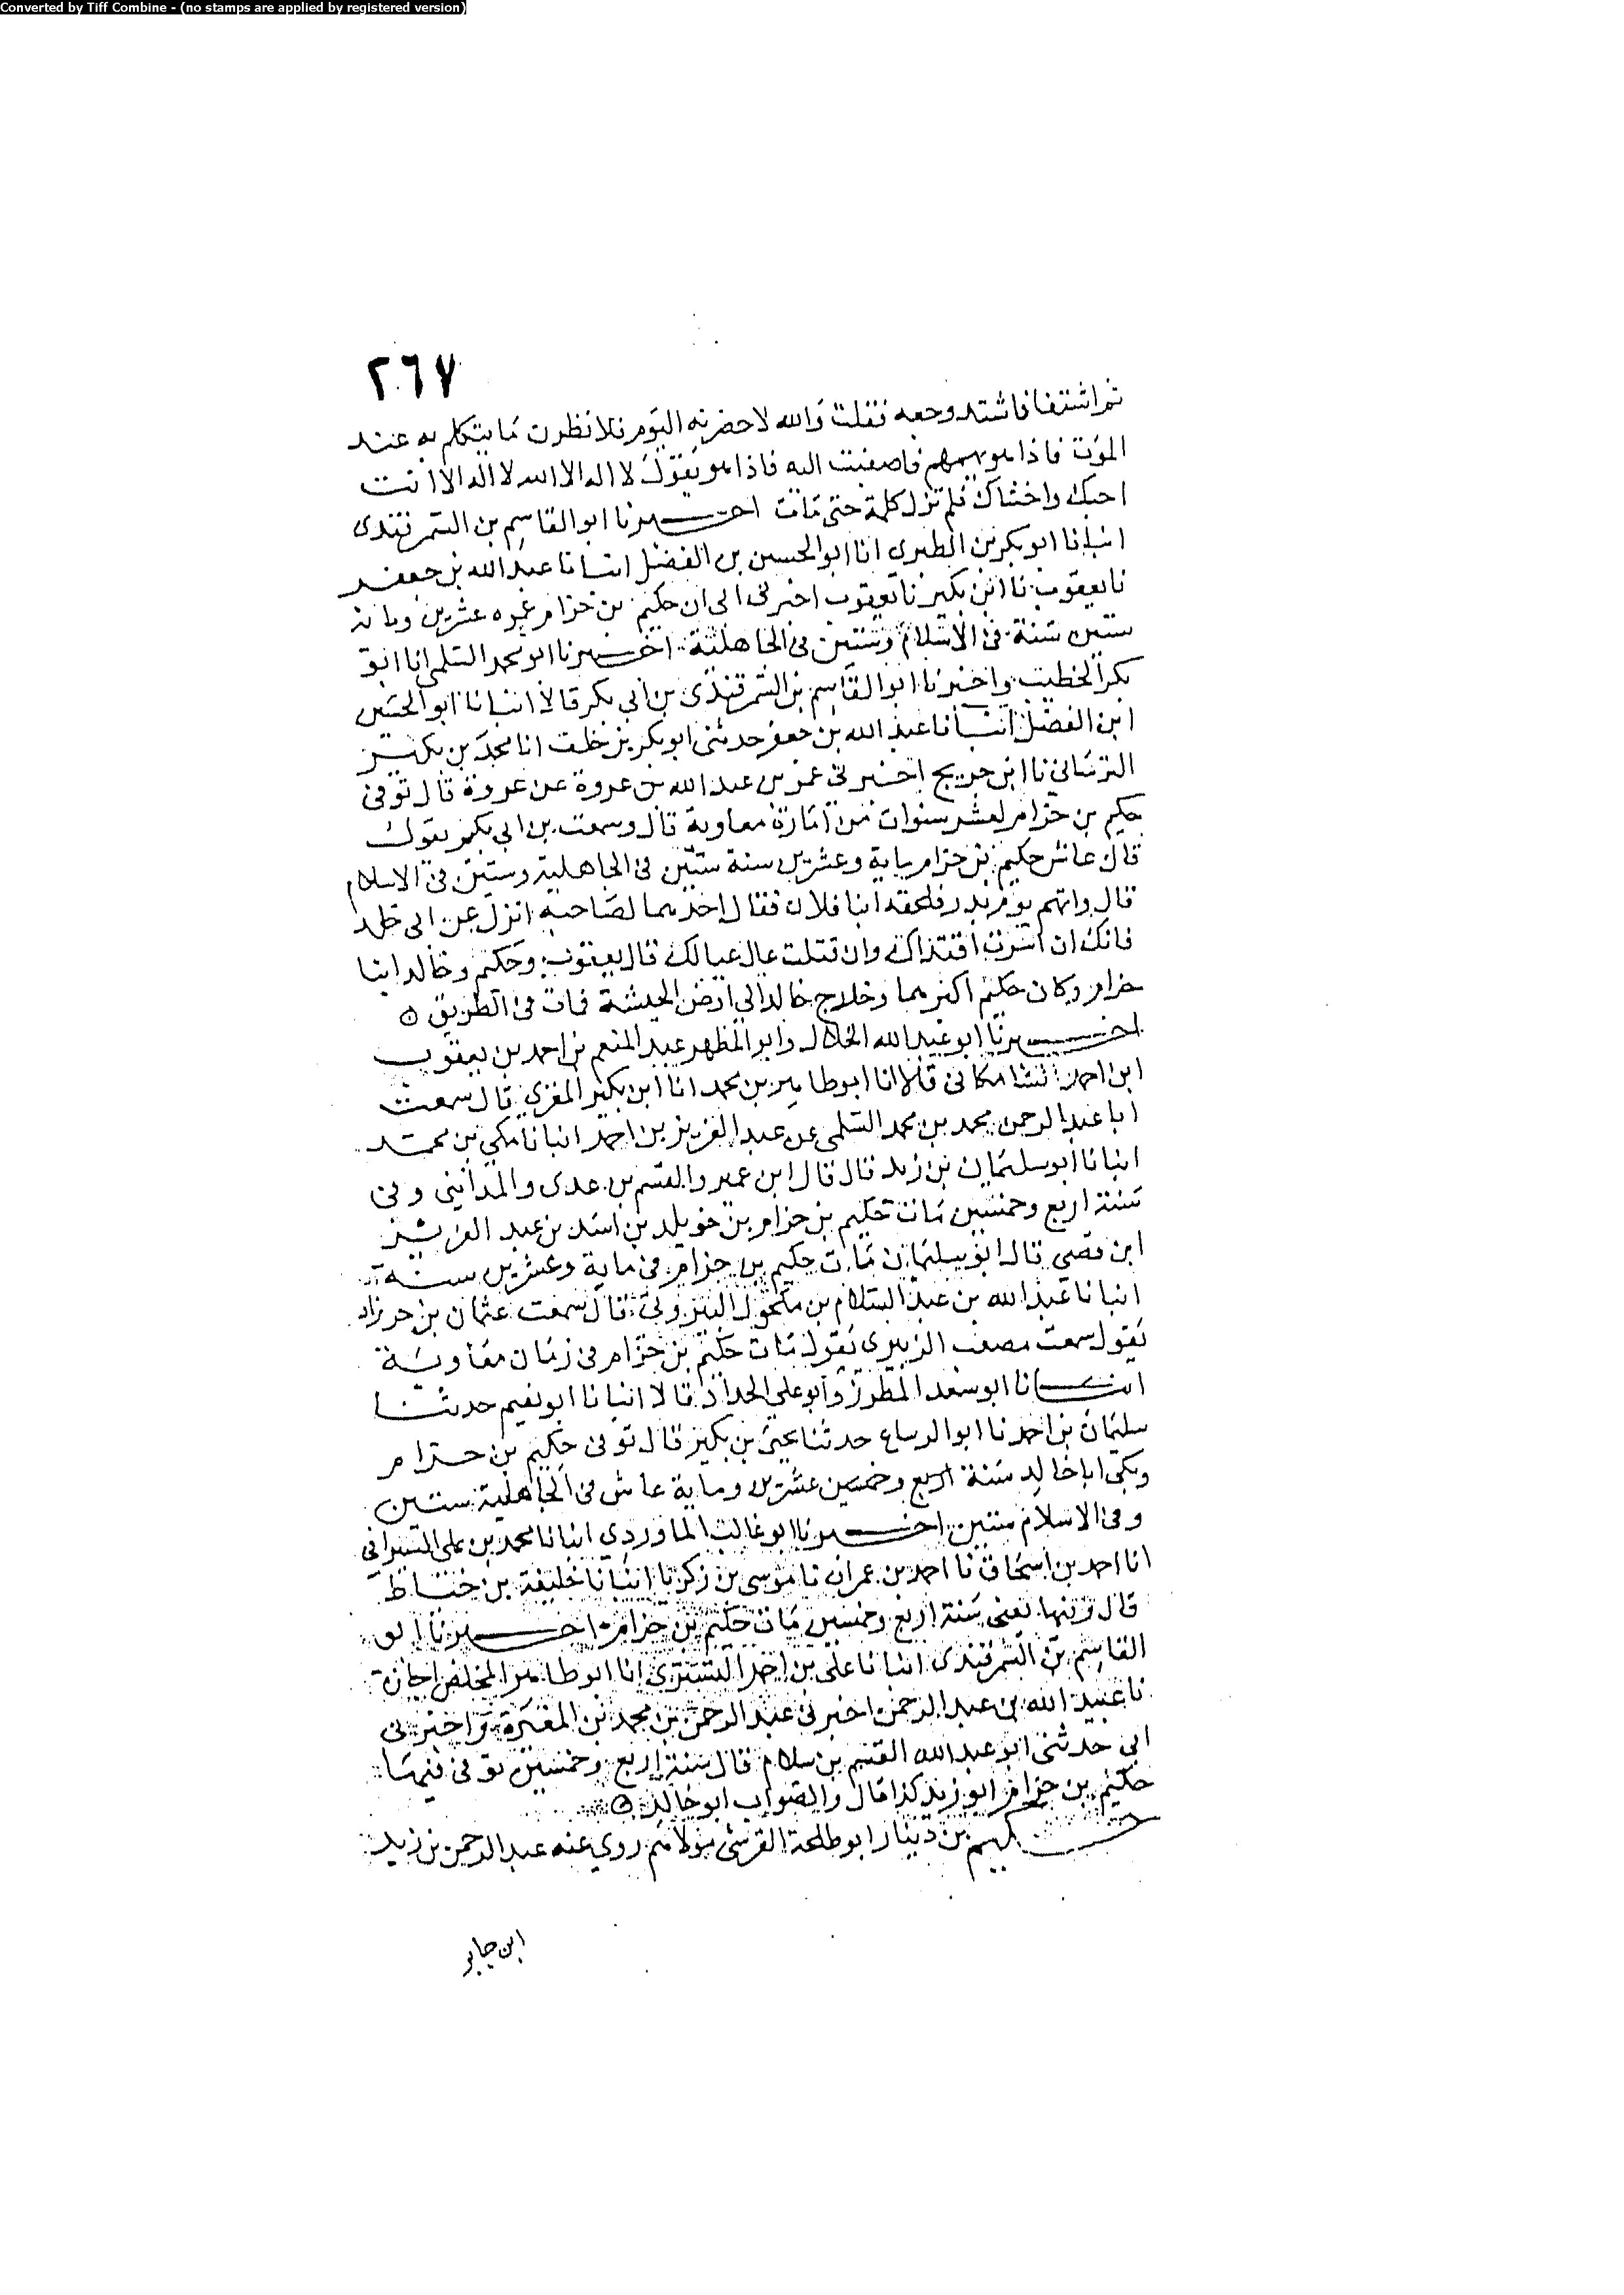 Converted by Tiff Combine - (no stamps are applied by registered version)
٢٦٧
ثم اشتفا فاشتد وجعه فقلت والله لاحضرنه اليوم فلانظرن ما يتكلم به عند
الموت فاذا هو يهمهم فاصغيت اليه فاذا هو يقول لا اله الا الله لا اله الا انت
احبك واخشاك فلم تزل كلمة حتى مات اخبرنا ابو القاسم بن السمرقندى
انبانا ابو بكر بن الطبرى انا ابو الحسين بن الفضل انبانا عبد الله بن جعفر
نا يعقوب نا ابن بكير نا يعقوب اخبرنى ابى ان حكيم بن حزام عمره عشرين وماية
ستين سنة فى الاسلام وستين فى الجاهلية اخبرنا ابو محمد السلمى انا ابو
بكر الخطيب واخبرنا ابو القاسم بن السمرقندى بن ابي بكر قالا انبانا ابو الحسين
ابن الفضل انبانا عبد الله بن جعفر حدثنى ابو بكر بن خلف انا محمد بن بكير
البرسانى نا ابن جريج اخبرنى عمر بن عبد الله بن عروة عن عروة قال توفى
حكيم بن حزام لعشر سنوات من امارة معاوية قال وسمعت بن ابي بكير يقول
قال عاش حكيم بن حزام ماية وعشرين سنة ستين فى الجاهلية وستين فى الاسلام
قال وانهم يوم بدر فلحقه ابنا فلان فقال احدهما لصاحبه انزل عن ابى خلد
فانك ان اسرت افتداك وان قتلت عال عيالك قال يعقوب وحكيم وخالد ابنا
حزام وكان حكيم اكبرهما وخلاج خالد الى ارض الحبشة فمات فى الطريق ⊙
اخبرنا ابو عبد الله الخلال وابو المظهر عبد المنعم بن احمد بن يعقوب
ابن احمد قالا انا ابو طاهر بن محمد انا ابن بكير المقري قال سمعت
ابا عبد الرحمن محمد بن محمد السلمى عن عبد العزيز بن احمد انبانا مكي بن محمد
انبانا ابو سليمان بن زيد قال قال ابن عمير والقسم بن عدى والمداينى وفى
سنة اربع وخمسين مات حكيم بن حزام بن خويلد بن اسد بن عبد العزيز
ابن قصى قال ابو سليمان مات حكيم بن حزام فى ماية وعشرين سنة
انبانا عبد الله بن عبد السلام بن مكحول البيروتى قال سمعت عثمان بن حرزاد
يقول سمعت مصعب الزبيرى يقول مات حكيم بن حزام فى زمان معاوية
انبانا ابو سعد المطرز وابو على الحداد قالا انبانا ابو نعيم حدثنا
سليمان بن احمد نا ابو الرساع حدثنا يحيى بن بكير قال توفى حكيم بن حزام
ويكنى ابا خالد سنة اربع وخمسين عشرين وماية عاش فى الجاهلية ستين
وفى الاسلام ستين اخبرنا ابو غالب الماوردي انبانا محمد بن على السيرافى
انا احمد بن اسحاق نا احمد بن عمران نا موسى بن زكريا انبانا خليفة بن خياط
قال وفيها يعنى سنة اربع وخمسين مات حكيم بن حزام اخبرنا ابو
القاسم بن السمرقندى انبانا على بن احمد البستري انا ابو طاهر المخلص اجازة
نا عبيد الله بن عبد الرحمن اخبرنى عبد الرحمن بن محمد بن المغيرة واخبرنى
ابي حدثنى ابو عبد الله القسم بن سلام قال سنة اربع وخمسين توفى فيها
حكيم بن حزام ابو زيد كذا قال والصواب ابو خالد ⊙
حكيم بن دينار ابو طلحة القرشى مولاهم روي عنه عبد الرحمن بن زيد
ابن جابر